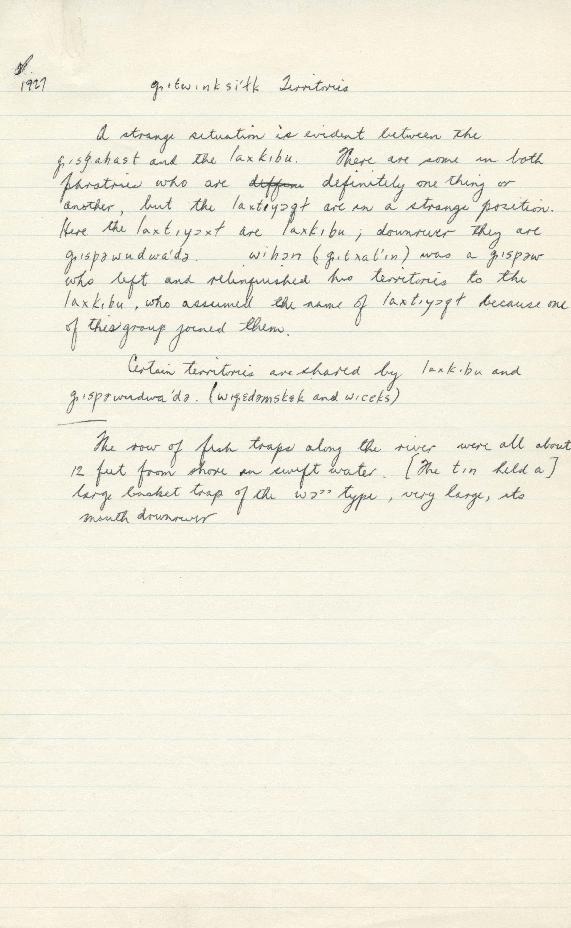 1927
gitwinksiłk Territories
A strange situation is evident between the
gisgahast and the laxkibu. There are some in both
phratries who are definitely one thing or
another, but the laxtıyɔgt are in a strange position.
Here the laxtıyɔxt are laxkibu; downriver they are
gıspəwudwa'də. wihɔn (gitxał'in) was a gispəw
who left and relinquished his territories to the
laxkibu, who assumed the name of laxtıyɔgt because one
of this group joined them.
Certain territories are shared by laxkibu and
gıspəwudwa'də. (wıgɛdəmskɛk and wiɛɛks)
The row of fish traps along the river were all about
12 feet from shore in swift water. [The tin held a]
large basket trap of the type, very large, its
mouth downriver